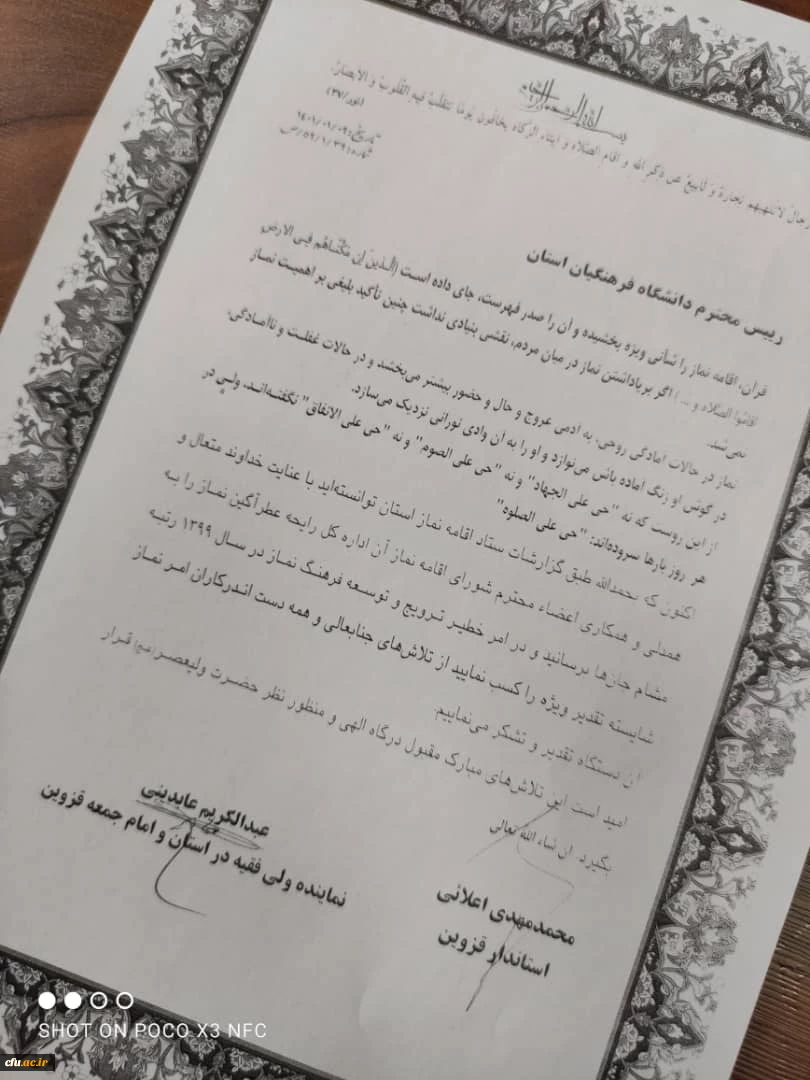 بسم الله الرحمن الرحیم
رجال لاتلهیهم تجارة و لابیع عن ذکر الله و اقام الصلاه و ایتاء الزکاه یخافون یوما تتقلب فیه القلوب و الابصار
(نور/۳۷)
تاریخ:
رییس محترم دانشگاه فرهنگیان استان
قرآن، اقامه نماز را شأنی ویژه بخشیده و آن را صدر فهرست، جای داده است (الذین ان مکناهم فی الارض
اقاموا الصلاه و ... ) اگر برپاداشتن نماز در میان مردم، نقشی بنیادی نداشت چنین تأکید بلیغی بر اهمیت نماز
نمی‌شد.
نماز در حالات آمادگی روحی، به آدمی عروج و حال و حضور بیشتر می‌بخشد و در حالات غفلت و ناآمادگی،
در گوش او زنگ آماده باش می‌نوازد و او را به آن وادی نورانی نزدیک می‌سازد.
از این روست که نه "حی علی الجهاد" و نه "حی علی الصوم" و نه "حی علی الانفاق" نگفته‌اند. ولی در
هر روز بارها سروده‌اند: "حی علی الصلوه"
اکنون که بحمدالله طبق گزارشات ستاد اقامه نماز استان توانسته‌اید با عنایت خداوند متعال و
همدلی و همکاری اعضاء محترم شورای اقامه نماز آن اداره کل رایحه عطرآگین نماز را به
مشام جان‌ها برسانید و در امر خطیر ترویج و توسعه فرهنگ نماز در سال ۱۳۹۹ رتبه
شایسته تقدیر ویژه را کسب نمایید از تلاش‌های جنابعالی و همه دست اندرکاران امر نماز
آن دستگاه تقدیر و تشکر می‌نماییم.
امید است این تلاش‌های مبارک مقبول درگاه الهی و منظور نظر حضرت ولیعصر(عج) قرار
بگیرد. ان شاء الله تعالی
محمدمهدی اعلائی
استاندار قزوین
عبدالکریم عابدینی
نماینده ولی فقیه در استان و امام جمعه قزوین
SHOT ON POCO X3 NFC
cfu.ac.ir